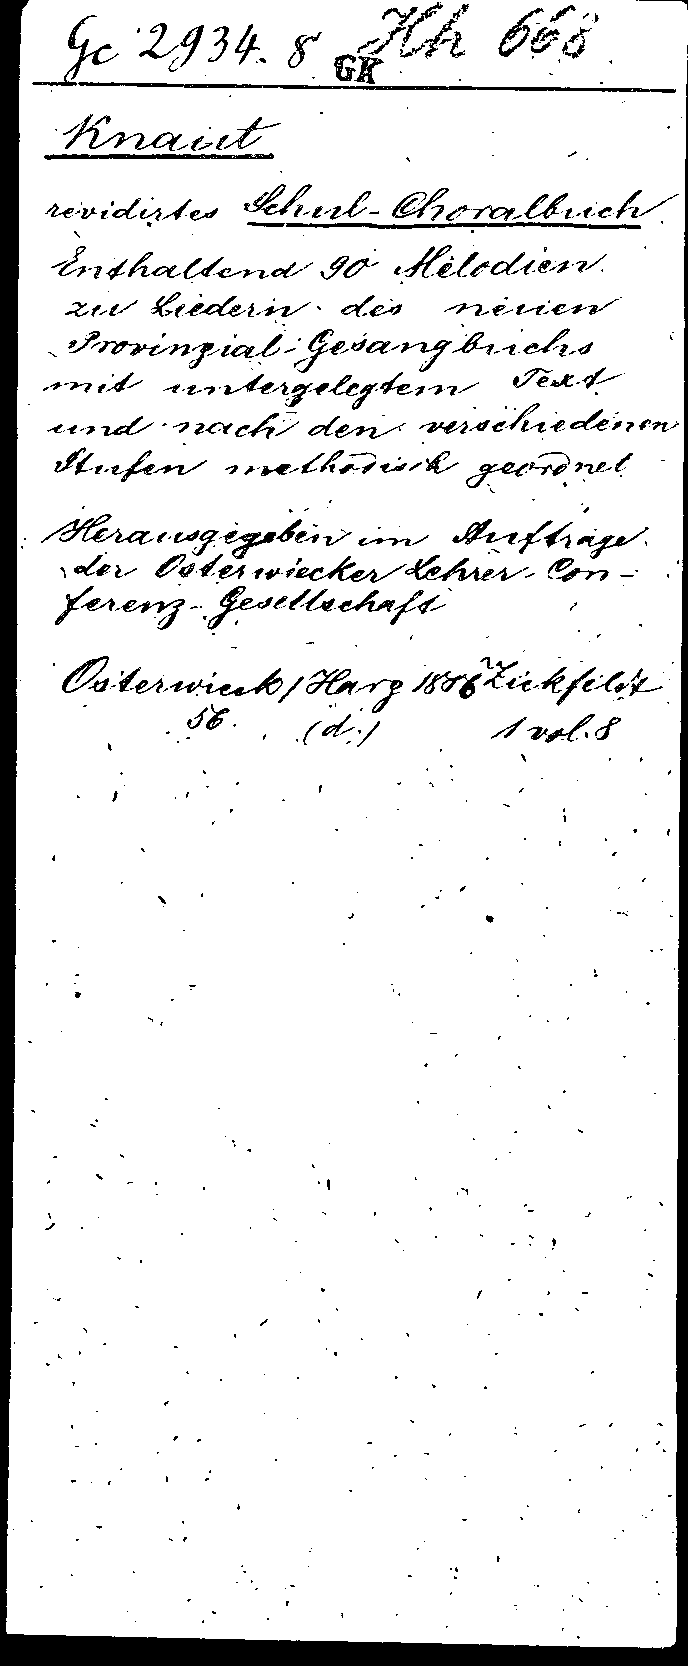 Gc 2934. 8 Hh 668
GK
Knaut
revidirtes Schul-Choralbuch.
Enthaltend 90 Melodien
zu Liedern des neuen
Provinzial-Gesangbuchs
mit untergelegtem Text
und nach den verschiedenen
Stufen methodisch geordnet
Herausgegeben im Auftrage
der Osterwiecker Lehrer-Con-
ferenz-Gesellschaft
Osterwieck/Harz 1886 Zickfeldt
56. (d.) 1 vol. 8